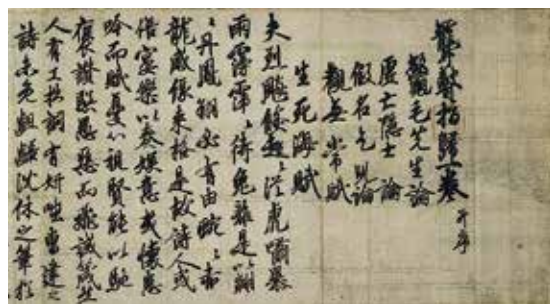 聾瞽指歸一卷 并序
鼈毛先生論
虛亡隱士論
假名乞兒論
觀無常賦
生死海賦
夫烈飈倏起從虎嘯暴
雨霶霈待兔離是以翽
〻丹鳳翔必有由蜿〻赤
龍感緣來格是故詩人或
宴樂以奏娛意或懷患
吟而賦憂心 賢能以馳
褒讚 愚惡而飛誡箴
人有工拙詞有妍嗤曹建之
詩未免齟齬沈休之筆猶